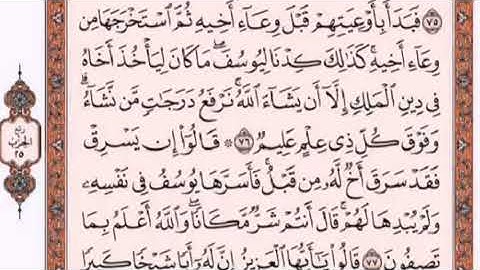 ٧٥ فَبَدَأَ بِأَوْعِيَتِهِمْ قَبْلَ وِعَآءِ أَخِيهِ ثُمَّ ٱسْتَخْرَجَهَا مِن
وِعَآءِ أَخِيهِ ۚ كَذَٰلِكَ كِدْنَا لِيُوسُفَ ۖ مَا كَانَ لِيَأْخُذَ أَخَاهُ
فِى دِينِ ٱلْمَلِكِ إِلَّآ أَن يَشَآءَ ٱللَّهُ ۚ نَرْفَعُ دَرَجَٰتٍ مَّن نَّشَآءُ ۗ
وَفَوْقَ كُلِّ ذِى عِلْمٍ عَلِيمٌ ٧٦ ۞ قَالُوٓا۟ إِن يَسْرِقْ
فَقَدْ سَرَقَ أَخٌ لَّهُۥ مِن قَبْلُ ۚ فَأَسَرَّهَا يُوسُفُ فِى نَفْسِهِۦ
وَلَمْ يُبْدِهَا لَهُمْ ۚ قَالَ أَنتُمْ شَرٌّ مَّكَانًا ۖ وَٱللَّهُ أَعْلَمُ بِمَا
تَصِفُونَ ٧٧ قَالُوا۟ يَٰٓأَيُّهَا ٱلْعَزِيزُ إِنَّ لَهُۥٓ أَبًا شَيْخًا كَبِيرًا
ربع
الحزب
٢٥